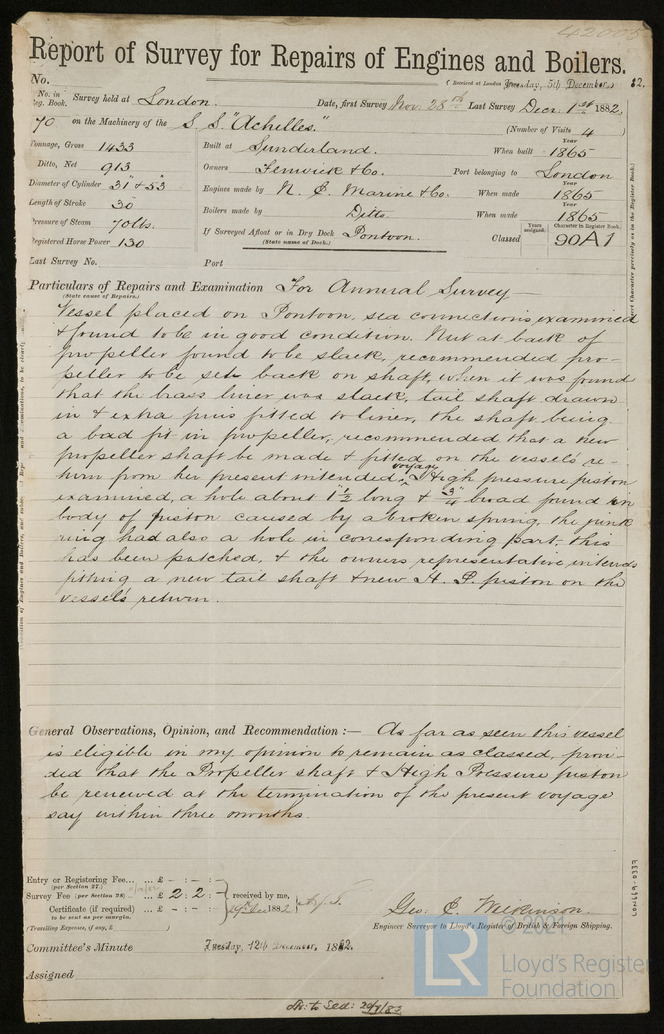 42005
Report of Survey for Repairs of Engines and Boilers.
No. (Received at London Tuesday, 5th December 82.
No. in Reg. Book. Survey held at London. Date, first Survey Nov. 28th Last Survey Decr. 1st 1882.
70 on the Machinery of the S. S. "Achilles." (Number of Visits 4)
Tonnage, Gross 1433 Built at Sunderland. When built Year 1865
Ditto, Net 913 Owners Fenwick & Co. Port belonging to London
Diameter of Cylinder 31" & 53" Engines made by N. E. Marine & Co. When made Year 1865
Length of Stroke 36 Boilers made by Ditto When made Year 1865
Pressure of Steam 70 lbs. If Surveyed Afloat or in Dry Dock Pontoon. Classed Years assigned. Character in Register Book. 90A1
Registered Horse Power 130 (State name of Dock.)
Last Survey No. Port
Particulars of Repairs and Examination For Annual Survey
(State cause of Repairs.)
Vessel placed on Pontoon, sea connections examined
& found to be in good condition. Nut at back of
propeller found to be slack, recommended pro-
peller to be set back on shaft, when it was found
that the brass liner was slack, tail shaft drawn
in & extra pins fitted to liner, the shaft being
a bad fit in propeller, recommended that a new
propeller shaft be made & fitted on the vessel's re-
turn from her present intended voyage. High pressure piston
examined, a hole about 1½" long & ¾" broad found in
body of piston caused by a broken spring, the junk
ring had also a hole in corresponding part, this
has been patched, & the owners representative intends
fitting a new tail shaft & new H. P. piston on the
vessel's return.
General Observations, Opinion, and Recommendation :— As far as seen this vessel
is eligible in my opinion to remain as classed, provi-
ded that the Propeller shaft & High Pressure piston
be renewed at the termination of the present voyage
say within three months.
Entry or Registering Fee... ... £ - : - : -
(per Section 27.)
Survey Fee (per Section 28) ... £ 2 : 2 : - received by me,
Certificate (if required) ... £ - : - : - 1882
to be sent as per margin.
(Travelling Expenses, if any, £ )
Geo. E. Wilkinson.
Engineer Surveyor to Lloyd's Register of British & Foreign Shipping.
Committee's Minute Tuesday, 12th December, 1882.
Assigned
LON669-0337
© 2021
LR
Lloyd's Register
Foundation